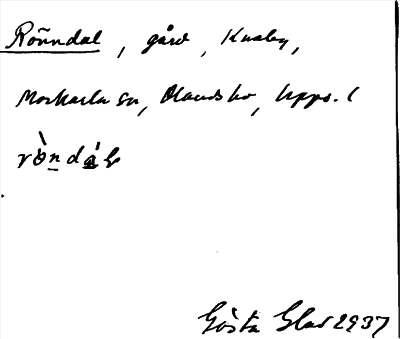 Rönndal, gård, Knaby,
Morkarla sn, Olands hd, Upps. l
rò̈n̲da̲´l
Gösta Glad 1937